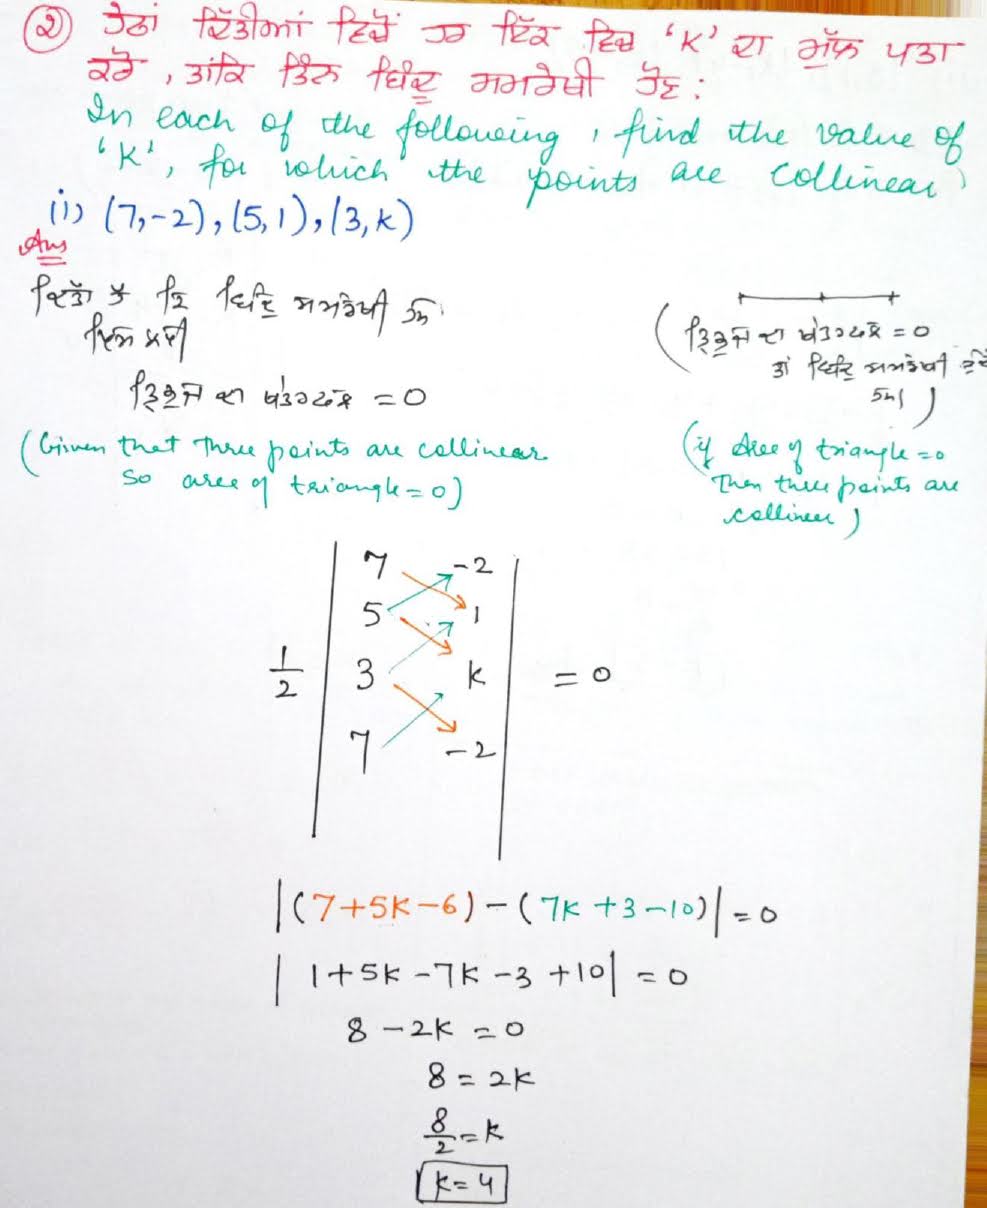 ② ਹੇਠਾਂ ਦਿੱਤੀਆਂ ਵਿਚੋਂ ਹਰ ਇੱਕ ਵਿਚ 'K' ਦਾ ਮੁੱਲ ਪਤਾ
ਕਰੋ, ਤਾਂਕਿ ਤਿੰਨ ਬਿੰਦੂ ਸਮਰੇਖੀ ਹੋਣ :
In each of the following, find the value of
'K', for which the points are collinear
(i) (7,-2), (5,1), (3,k)
Ans
ਦਿੱਤਾ ਹੈ ਕਿ ਬਿੰਦੂ ਸਮਰੇਖੀ ਹਨ
ਇਸ ਲਈ
ਤ੍ਰਿਭੁਜ ਦਾ ਖੇਤਰਫਲ = 0
(ਤ੍ਰਿਭੁਜ ਦਾ ਖੇਤਰਫਲ = 0
ਤਾਂ ਬਿੰਦੂ ਸਮਰੇਖੀ ਹੁੰਦੇ
ਹਨ।)
(Given that three points are collinear
so area of triangle = 0)
(if Area of triangle = 0
Then three points are
collinear)
7 -2
5 1
1/2 3 k = 0
7 -2
|(7+5K-6)-(7K+3-10)| = 0
| 1+5K-7K-3+10| = 0
8-2K = 0
8 = 2K
8/2 = K
K = 4